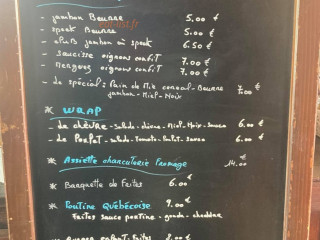 - Jambon Beurre 5.00 €
- Speck Beurre 5.00 €
- CLUB jambon ou speck 6.50 €
- Saucisse oignons confit 7.00 €
- Merguez oignons confit 7.00 €
- Le Spécial : Pain de Mie cereal-Beurre 7.00 €
jambon-Miel-Noix
* WRAP
- Le CHÈVRE - Salade - chèvre - Miel - Noix - Sauce 6.00 €
- Le POULET - Salade - Tomate - Poulet - Sauce 6.00 €
* Assiette charcuterie fromage 14.00 €
* Barquette de Frites 6.00 €
* Poutine Québécoise 9.00 €
Frites sauce poutine - gouda - cheddar
8.00 €